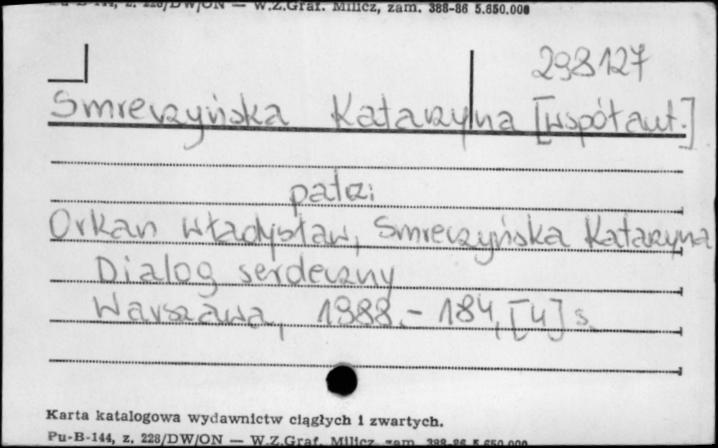 Pu-B-144, z. 228/DW/ON — W.Z.Graf. Milicz, zam. 388-86 5.650.000
298127
Smreczyńska Katarzyna [współaut.]
patrz:
Orkan Władysław, Smreczyńska Katarzyna
Dialog serdeczny
Warszawa, 1988.- 184, [4] s.
Karta katalogowa wydawnictw ciągłych i zwartych.
Pu-B-144, z. 228/DW/ON — W.Z.Graf. Milicz, zam. 388-86 5.650.000